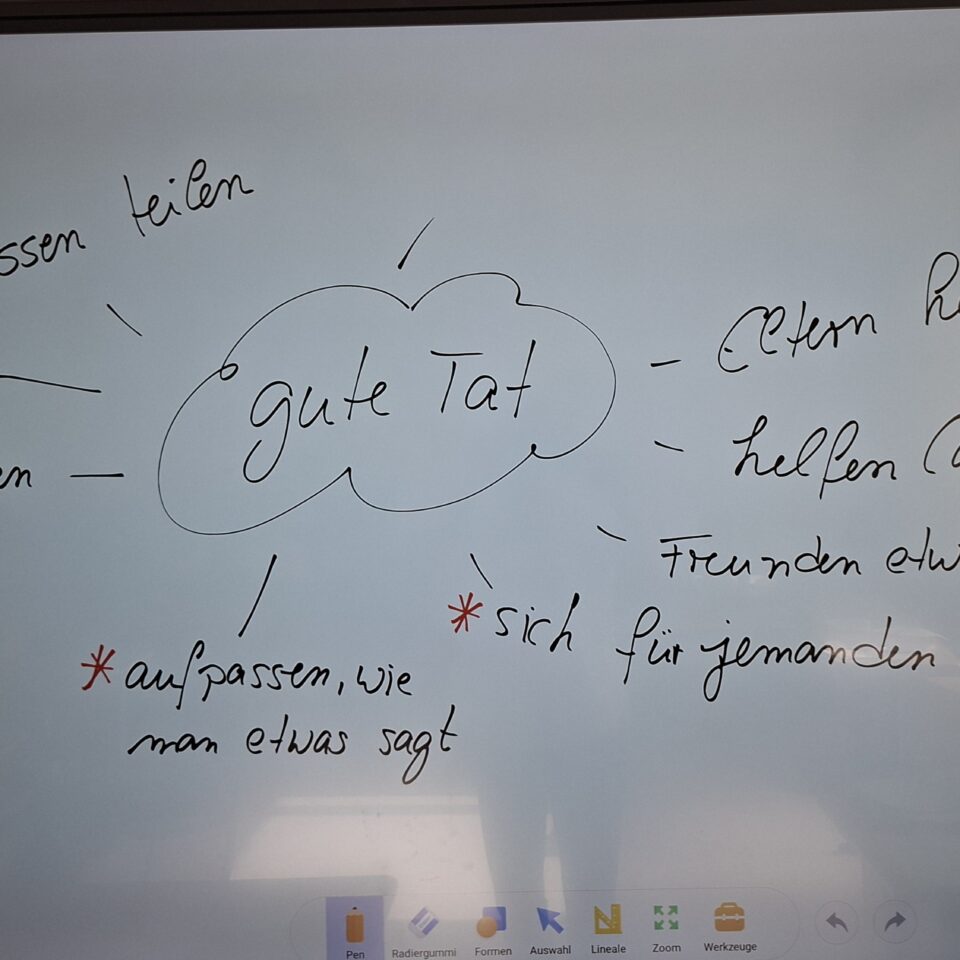 teilen
gute Tat
Eltern
helfen
Freunden
* sich für jemanden
* aufpassen, wie
man etwas sagt
Pen
Radiergummi
Formen
Auswahl
Lineale
Zoom
Werkzeuge